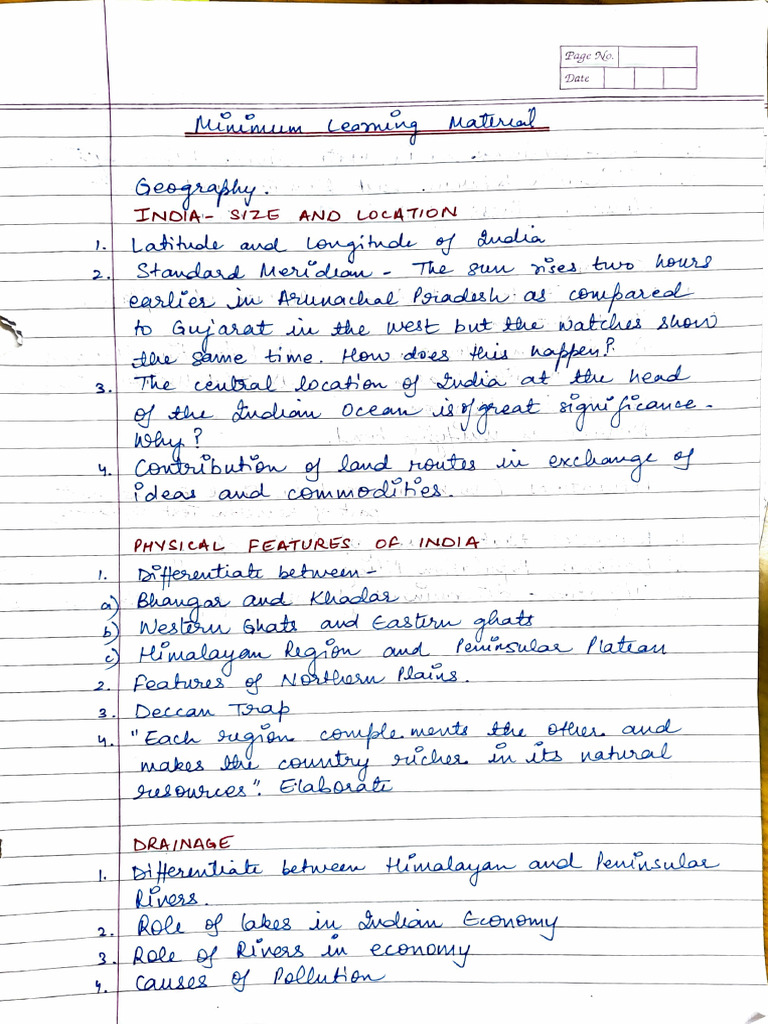 Page No.
Date
Minimum Learning Material
Geography.
INDIA- SIZE AND LOCATION
1. Latitude and Longitude of India
2. Standard Meridian - The sun rises two hours
earlier in Arunachal Pradesh as compared
to Gujarat in the west but the watches show
the same time. How does this happen?
3. The central location of India at the head
of the Indian Ocean is of great significance.
Why?
4. Contribution of land routes in exchange of
ideas and commodities.
PHYSICAL FEATURES OF INDIA
1. Differentiate between-
a) Bhangar and Khadar
b) Western Ghats and Eastern ghats
c) Himalayan Region and Peninsular Plateau
2. Features of Northern Plains.
3. Deccan Trap
4. "Each region complements the other and
makes the country richer in its natural
resources". Elaborate
DRAINAGE
1. Differentiate between Himalayan and Peninsular
Rivers.
2. Role of lakes in Indian Economy
3. Role of Rivers in economy
4. Causes of Pollution